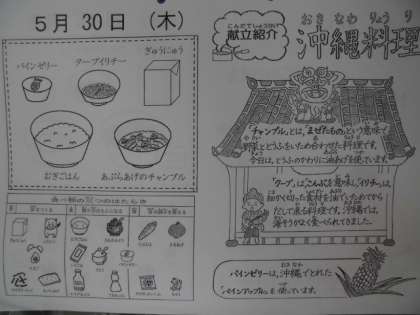 5月 30日 (木)
ぎゅうにゅう
パインゼリー クーブイリチー
むぎごはん あぶらあげのチャンプル
こんだてしょうかい
献立紹介
おきなわりょうり
沖縄料理
「チャンプル」とは、「まぜたもの」という意味で
野菜ととうふをいためて合わせた料理です。
今日は、とうふのかわりに油あげを使っています。
「クーブ」は「こんぶ」を意味し、「イリチー」は、
細かく切った食材を油でいためてから
だしで煮る料理です。沖縄では、
海そうがよく食べられてきました。
パインゼリーは、沖縄でとれた
「パインアップル」を使っています。